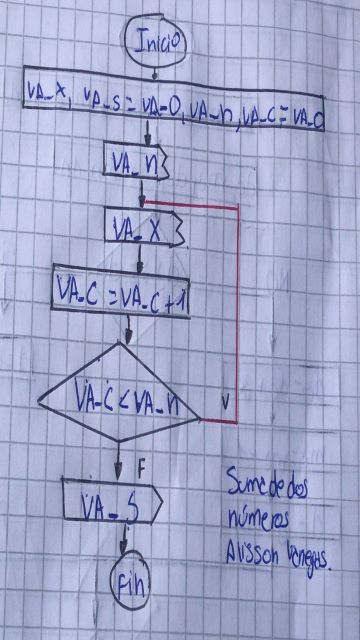 Inicio
VA_x, VA_s = VA_0, VA_n, VA_c = VA_0
VA_n
VA_X
VA_C = VA_C + 1
VA_C < VA_n
V
F
VA_S
Fin
Suma de dos
números
Alisson Venegas.